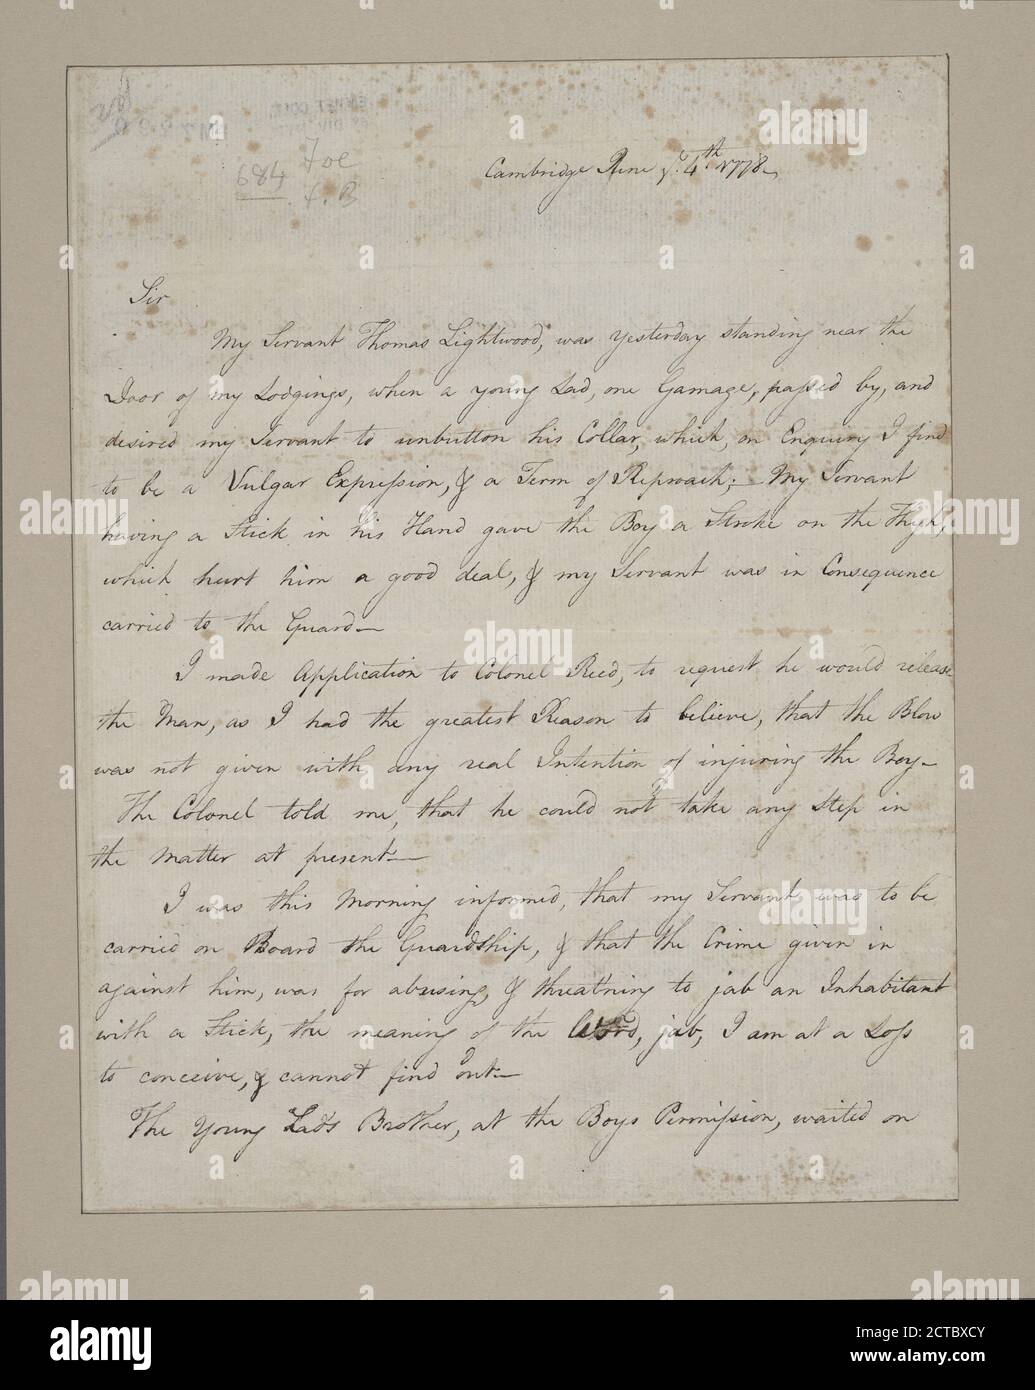 684 Foe
J. B
Cambridge June ye. 4th. 1778,
Sir
My Servant Thomas Lightwood, was yesterday standing near the
Door of my Lodgings, when a young Lad, one Gamage, passed by, and
desired my Servant to unbutton his Collar, which, on Enquiry I find
to be a Vulgar Expression, & a Term of Reproach; — My Servant
having a Stick in his Hand gave the Boy a Stroke on the Thigh,
which hurt him a good deal, & my Servant was in Consequence
carried to the Guard —
I made Application to Colonel Reed, to request he would release
the Man, as I had the greatest Reason to believe, that the Blow
was not given with any real Intention of injuring the Boy —
The Colonel told me, that he could not take any Step in
the Matter at present —
I was this Morning informed, that my Servant was to be
carried on Board the Guardship, & that the Crime given in
against him, was for abusing, & threat'ning to jab an Inhabitant
with a Stick, the meaning of the Word, jab, I am at a Loss
to conceive, & cannot find out —
The Young Lads Brother, at the Boys Permission, waited on
alamy
alamy
Image ID: 2CTBXCY
www.alamy.com